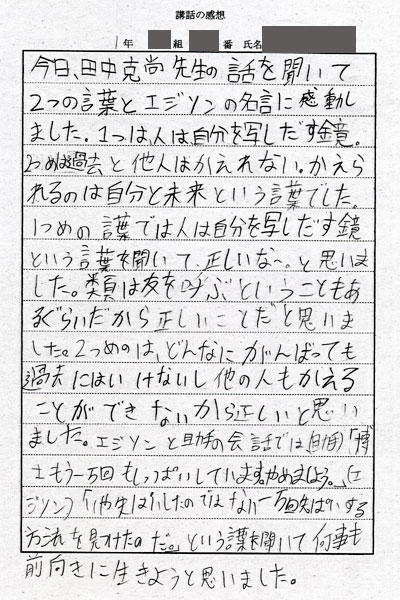 講話の感想
1年 組 番 氏名
今日、田中克尚先生の話を聞いて
2つの言葉とエジソンの名言に感動し
ました。1つは、人は自分を写しだす鏡。
2つめは過去と他人はかえれない。かえら
れるのは自分と未来という言葉でした。
1つめの言葉では人は自分を写しだす鏡
という言葉を聞いて、正しいな~。と思いま
した。類は友を呼ぶということもあ
るぐらいだから正しいことだと思いま
した。2つめのは、どんなにがんばっても
過去にはいけないし他の人もかえる
ことができないから正しいと思い
ました。エジソンと助手の会話では(助手)「博
士もう一万回もしっぱいしていますやめましょう。」(エ
ジソン)「いや失ぱいしたのではない一万回失ぱいする
方法を見つけたのだ。」という言葉を聞いて何事も
前向きに生きようと思いました。